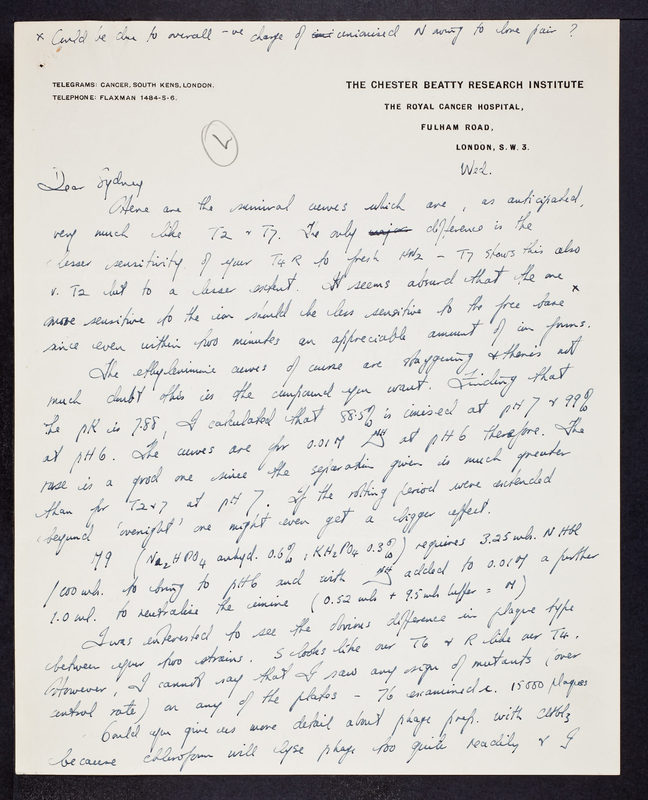 x Could be due to overall -ve charge of unionised N owing to lone pair ?
TELEGRAMS: CANCER, SOUTH KENS, LONDON.
TELEPHONE: FLAXMAN 1484-5-6.
THE CHESTER BEATTY RESEARCH INSTITUTE
THE ROYAL CANCER HOSPITAL,
FULHAM ROAD,
LONDON, S.W. 3.
Wed.
Dear Sydney
Here are the survival curves which are, as anticipated,
very much like T2 & T7. The only major difference is the
lesser sensitivity of your T4R to fresh HN2 – T7 shows this also
v. T2 but to a lesser extent. It seems absurd that the one
more sensitive to the ion should be less sensitive to the free base x
since even within two minutes an appreciable amount of ion forms.
The ethylenimine curves of course are staggering & there's not
much doubt this is the compound you want. Finding that
the pK is 7.88, I calculated that 88.5% is ionised at pH 7 & 99%
at pH 6. The curves are for 0.01M NH at pH 6 therefore. The
ruse is a good one since the separation given is much greater
than for T2 & 7 at pH 7. If the rotting period were extended
beyond 'overnight' one might even get a bigger effect.
M9 (Na2HPO4 anhyd. 0.6%; KH2PO4 0.3%) requires 3.25 mls. N HCl
/100 mls. to bring to pH 6 and with NH added to 0.01M a further
1.0 ml. to neutralise the imine (0.52 mls + 9.5 mls buffer = M)
I was interested to see the obvious difference in plaque type
between your two strains. S looks like our T6 & R like our T4.
However, I cannot say that I saw any sign of mutants (over
control rate) on any of the plates – 76 examined c. 15000 plaques
Could you give us more detail about phage prep. with CHCl3
because chloroform will lyse phage too quite readily & I